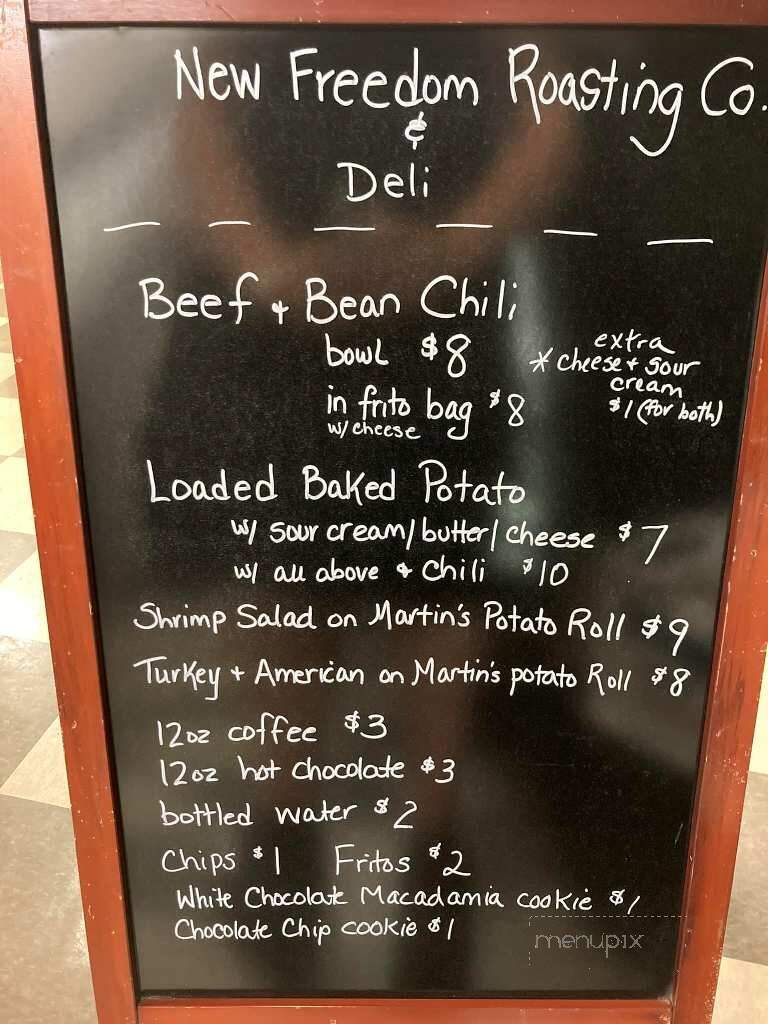 New Freedom Roasting Co.
&
Deli
Beef + Bean Chili
bowl $8
in frito bag $8
w/ cheese
extra
* cheese + sour
cream
$1 (for both)
Loaded Baked Potato
w/ sour cream/butter/cheese $7
w/ all above & Chili $10
Shrimp Salad on Martin's Potato Roll $9
Turkey + American on Martin's potato Roll $8
12oz coffee $3
12oz hot chocolate $3
bottled water $2
Chips $1 Fritos $2
White Chocolate Macadamia cookie $1
Chocolate Chip cookie $1
menupix